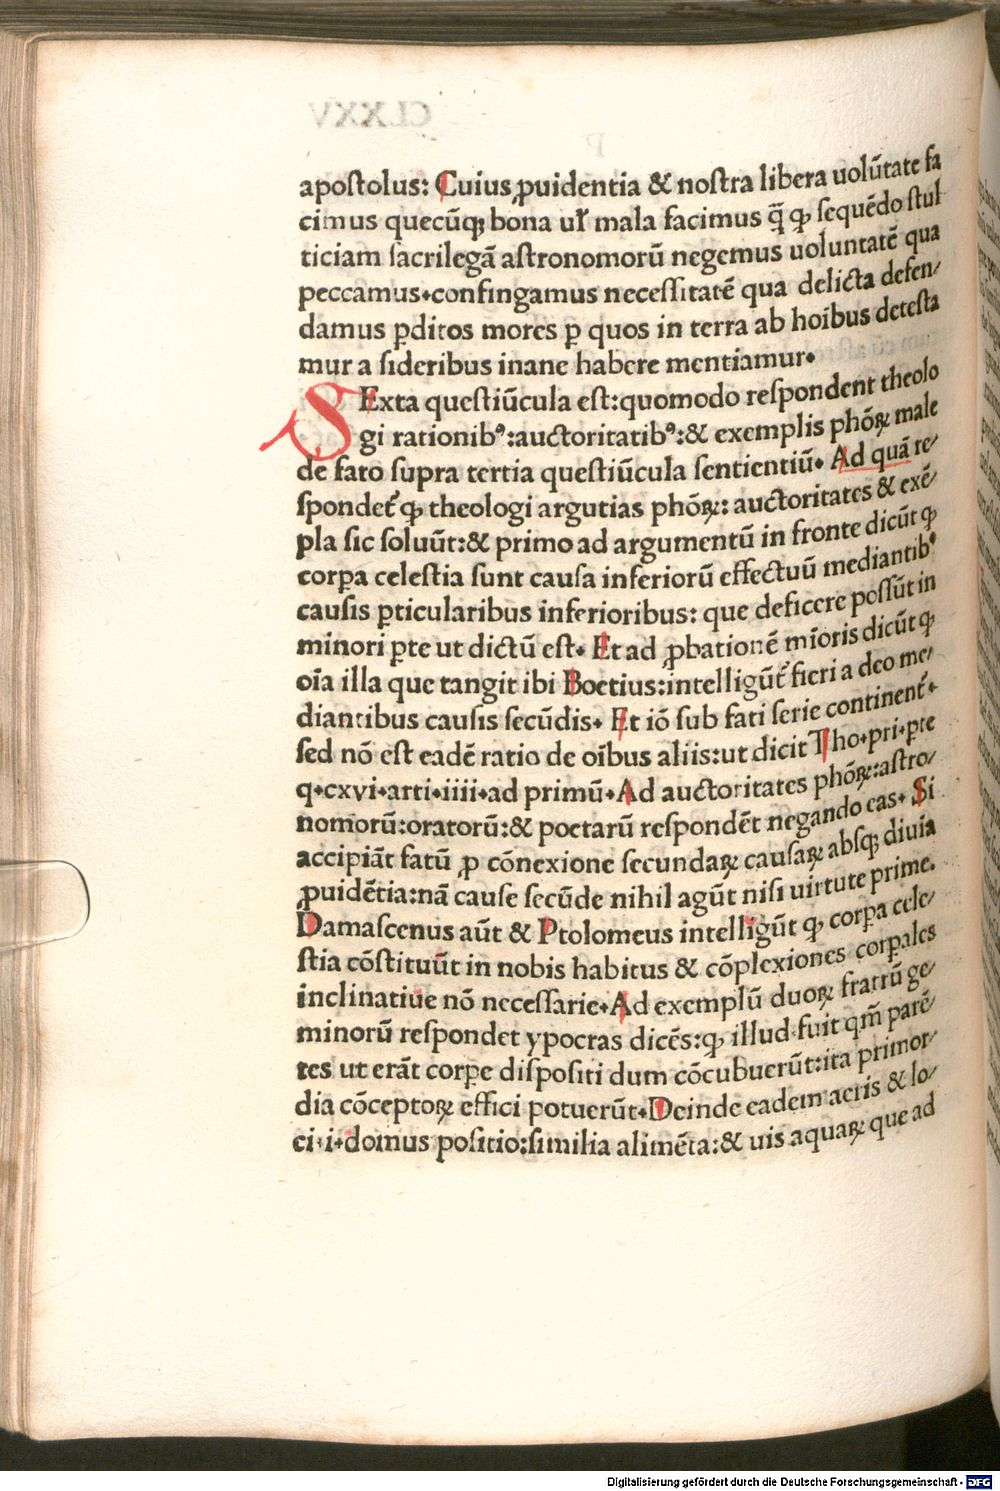 apoſtolus: Cuius ꝓuidentia & noſtra libera uolūtate fa
cimus quecūqꝫ bona ul̛ mala facimus q̄ ꝙ ſequēdo ſtul
ticiam ſacrilegā aſtronomorū negemus uoluntatē qua
peccamus.confingamus neceſſitatē qua delicta defen/
damus ꝑditos mores ꝑ quos in terra ab hoībus deteſta
mur a ſideribus inane habere mentiamur.
SExta queſtiūcula eſt:quomodo reſpondent theolo
gi rationibꝰ:auctoritatibꝰ:& exemplis phōꝝ male
de fato ſupra tertia queſtiūcula ſentientiū. Ad quā re/
ſpondet̃ ꝙ theologi argutias phōꝝ: auctoritates & exē/
pla ſic ſoluūt:& primo ad argumentū in fronte dicūt ꝙ
corꝑa celeſtia ſunt cauſa inferiorū effectuū mediantibꝰ
cauſis ꝑticularibus inferioribus: que deficere poſſūt in
minori ꝑte ut dictū eſt. Et ad ꝓbationē mīoris dicūt ꝙ
oīa illa que tangit ibi Boetius:intelligūt̃ fieri a deo me/
diantibus cauſis ſecūdis. Et iō ſub fati ſerie continent̃.
ſed nō eſt eadē ratio de oībus aliis:ut dicit Tho.pri.ꝑte
q.cxvi.arti.iiii.ad primū.Ad auctoritates phōꝝ:aſtro/
nomorū:oratorū:& poetarū reſpondēt negando eas. Si
accipiāt fatū ꝓ cōnexione ſecundaꝝ cauſaꝝ abſqꝫ diuīa
ꝓuidētia:nā cauſe ſecūde nihil agūt niſi uirtute prime.
Damaſcenus aūt & Ptolomeus intelligūt ꝙ corꝑa cele/
ſtia cōſtituūt in nobis habitus & cōplexiones corꝑales
inclinatiue nō neceſſarie.Ad exemplū duoꝝ fratrū ge/
minorū reſpondet ypocras dicēs:ꝙ illud fuit qm̄ parē/
tes ut erāt corꝑe diſpoſiti dum cōcubuerūt:ita primor/
dia cōceptoꝝ effici potuerūt.Deinde eadem aeris & lo/
ci.i.domus poſitio:ſimilia alimēta:& uis aquaꝝ que ad
CLXXV
Digitalisierung gefördert durch die Deutsche Forschungsgemeinschaft - DFG